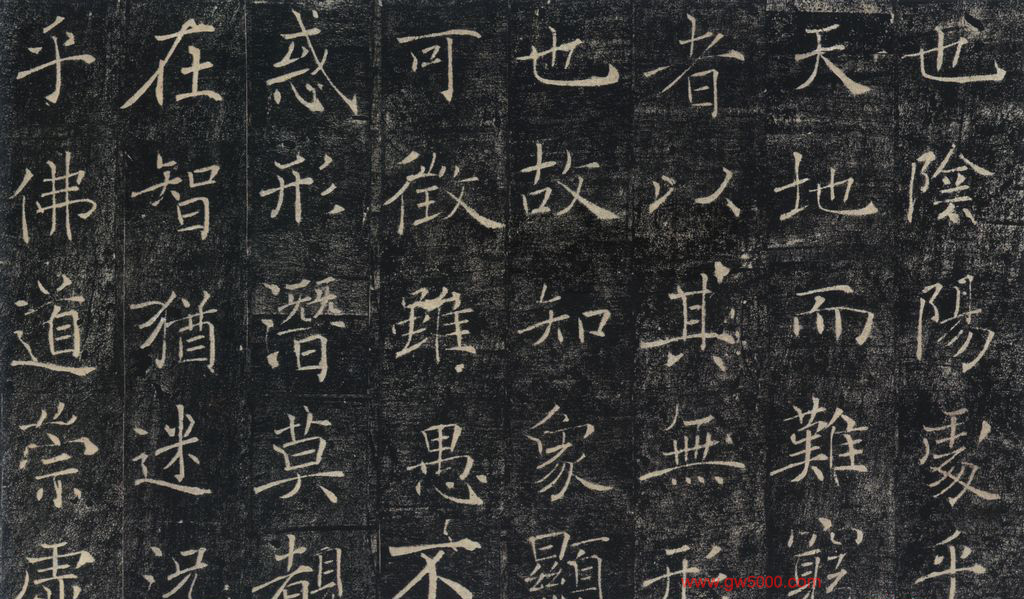 也陰陽處乎
天地而難窮
者以其無形
也故知象顯
可徵雖愚不
惑形潛莫覩
在智猶迷況
乎佛道崇虛
www.gw5000.com